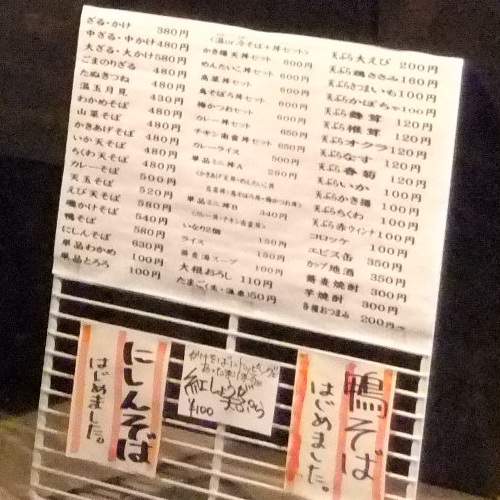 ざる・かけ 380円
中ざる・中かけ 480円
大ざる・大かけ 580円
ごまのりざる 480円
たぬきつね 480円
温玉月見 430円
わかめそば 480円
山菜そば 480円
かきあげそば 480円
いか天そば 480円
ちくわ天そば 480円
カレーそば 480円
天玉そば 500円
えび天そば 520円
鶏かけそば 580円
鴨そば 540円
にしんそば 580円
単品わかめ 630円
単品とろろ 100円
100円
<温or冷そば+丼セット>
かき揚天丼セット 600円
めんたいこ丼セット 600円
高菜丼セット 600円
鳥そぼろ丼セット 600円
梅かつおセット 600円
カレー丼セット 650円
チキン南蛮丼セット 650円
カレーライス 500円
単品ミニ丼A 290円
単品ミニ丼B 340円
いなり2個 150円
ライス 130円
蕎麦湯スープ 100円
大根おろし 110円
たまご(生・温泉) 50円
天ぷら大えび 200円
天ぷら鶏ささみ 160円
天ぷらさつまいも 100円
天ぷらかぼちゃ 100円
天ぷら舞茸 120円
天ぷら椎茸 120円
天ぷらオクラ 120円
天ぷらなす 120円
天ぷら春菊 120円
天ぷらいか 100円
天ぷらかき揚 100円
天ぷらちくわ 100円
天ぷら赤ウインナ 100円
コロッケ 100円
エビス缶 350円
カップ地酒 350円
蕎麦焼酎 300円
芋焼酎 300円
各種おつまみ 200円〜
にしんそば
はじめました。
紅しょうが
¥100
鴨そば
はじめました。